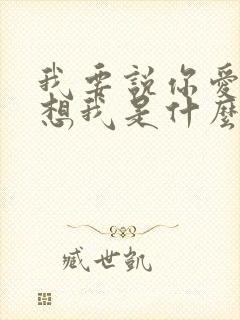 我要說你愛
想我是什麼
臧世凱